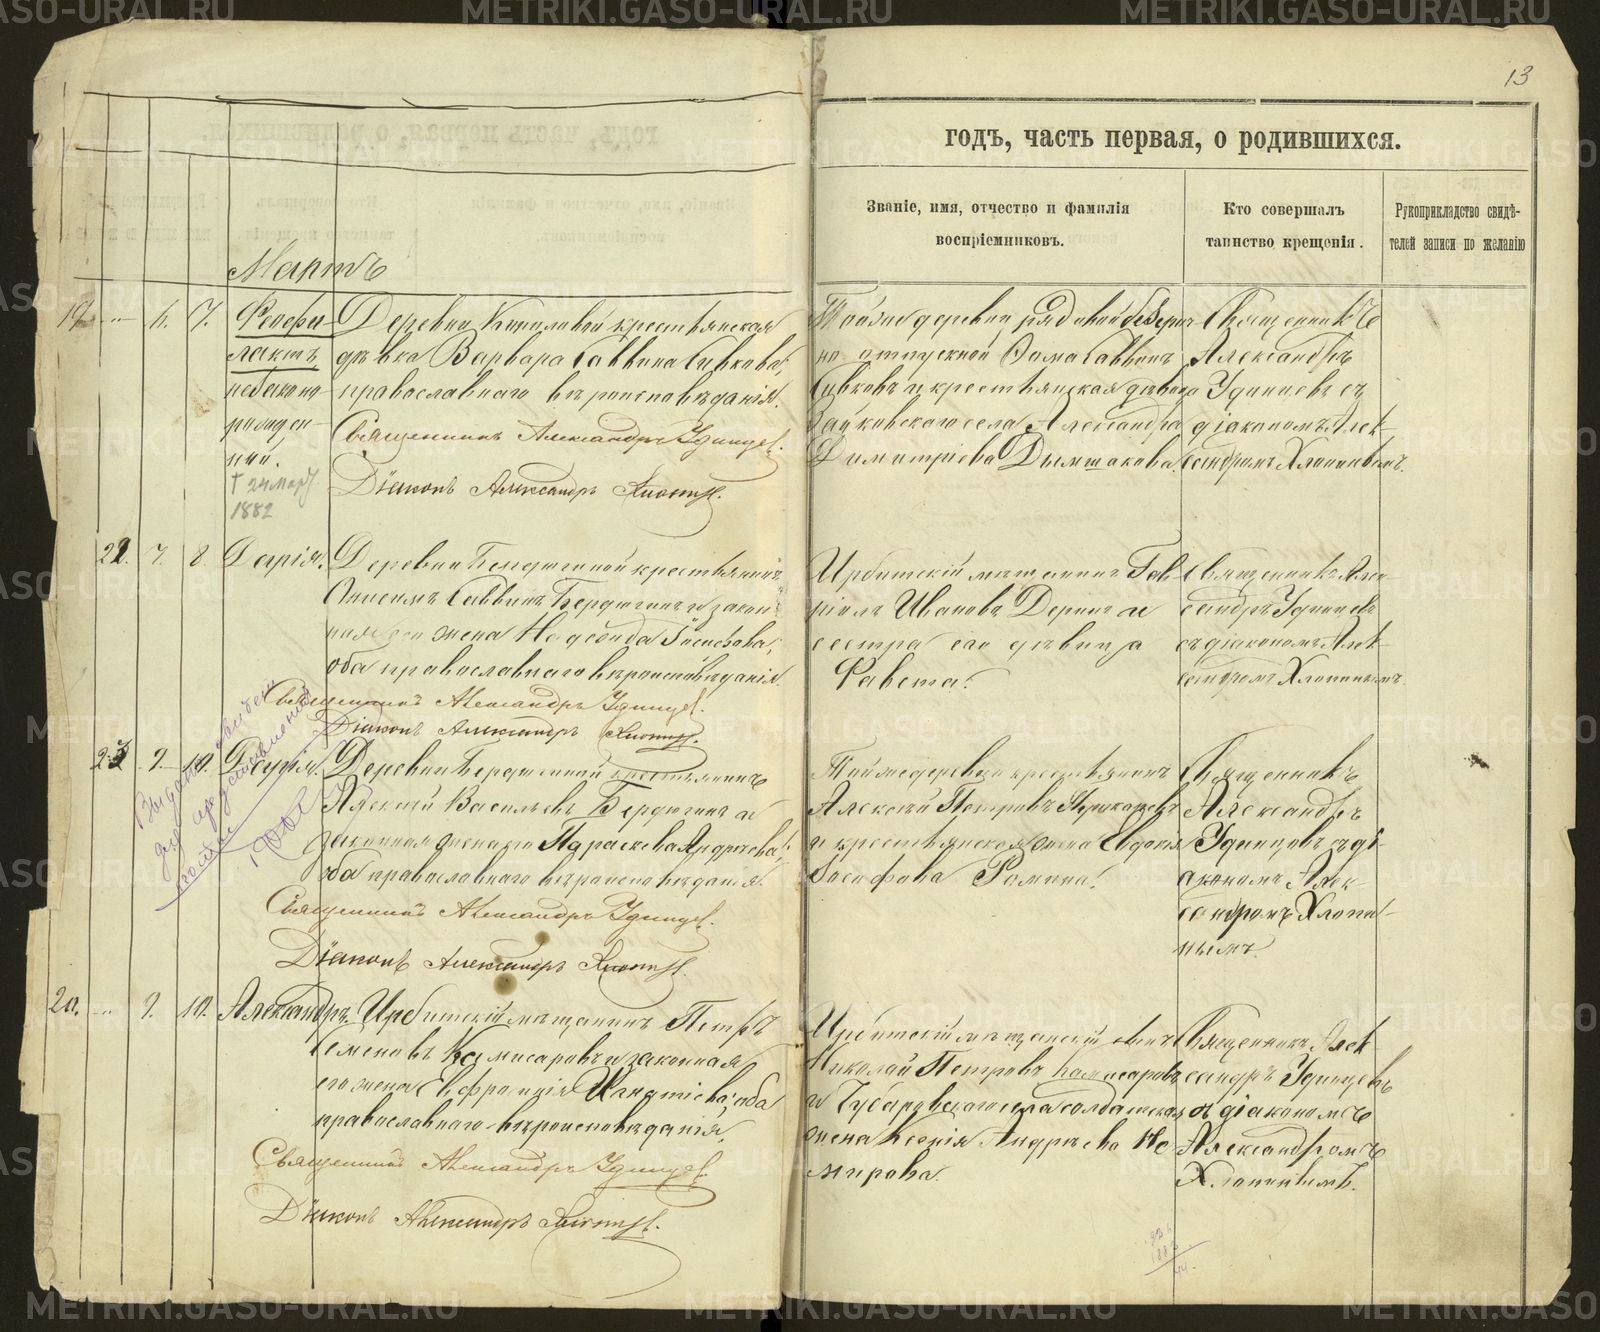 13
годъ, часть первая, о родившихся.
Званіе, имя, отчество и фамилія
воспріемниковъ.
Кто совершалъ
таинство крещенія.
Рукоприкладство свидѣ-
телей записи по желанію
Мартъ
19. 6. 7. Феофи-
лактъ
незаконно-
рожден-
ный.
† 24 мар
1882
Деревни крестьянская
дѣвка Варвара Саввина Сивкова,
православнаго вѣроисповѣданія.
Священникъ Александръ Удинцев.
Діаконъ Александръ
Тойже деревни рядовой безсроч-
но отпускной Ѳома Саввинъ
Сивковъ и крестьянская дѣвица
Зайковскаго села Александра
Димитріева Дымшакова.
Священникъ
Александръ
Удинцевъ съ
діакономъ Алек-
сандромъ Хлопинымъ.
22. 7. 8. Дарія.
Деревни Бердюгиной крестьянинъ
Анисимъ Саввинъ Бердюгинъ и закон-
ная его жена Надежда Іосифова,
оба православнаго вѣроисповѣданія.
Священникъ Александръ Удинцев.
Діаконъ Александръ
Ирбитскій мѣщанинъ Гав-
ріилъ Ивановъ и
сестра его дѣвица
Фавста.
Священникъ Алек-
сандръ Удинцевъ
съ діакономъ Алек-
сандромъ Хлопинымъ.
23 9. 10.
Деревни Бердюгиной крестьянинъ
Алексій Васильевъ Бердюгинъ и
законная жена его Параскева Андреева,
оба православнаго вѣроисповѣданія.
Священникъ Александръ Удинцев.
Діаконъ Александръ
Тойже деревни крестьянинъ
Алексій Петровъ
и крестьянская жена Евдокія
Іосифова
Священникъ
Александръ
Удинцевъ съ ді-
акономъ Алек-
сандромъ Хлопи-
нымъ.
20. 9. 10. Александръ.
Ирбитскій мѣщанинъ Петръ
Семеновъ Камисаровъ и законная
его жена Евфросинія Игнатіева, оба
православнаго вѣроисповѣданія.
Священникъ Александръ Удинцев.
Діаконъ Александръ
Ирбитскій мѣщанскій сынъ
Николай Петровъ Камисаровъ
и Чубаровскаго села солдатская
жена Ксенія Андреева Не-
мирова.
Священникъ Алек-
сандръ Удинцевъ
съ діакономъ
Александромъ
Хлопинымъ.
METRIKI.GASO-URAL.RU